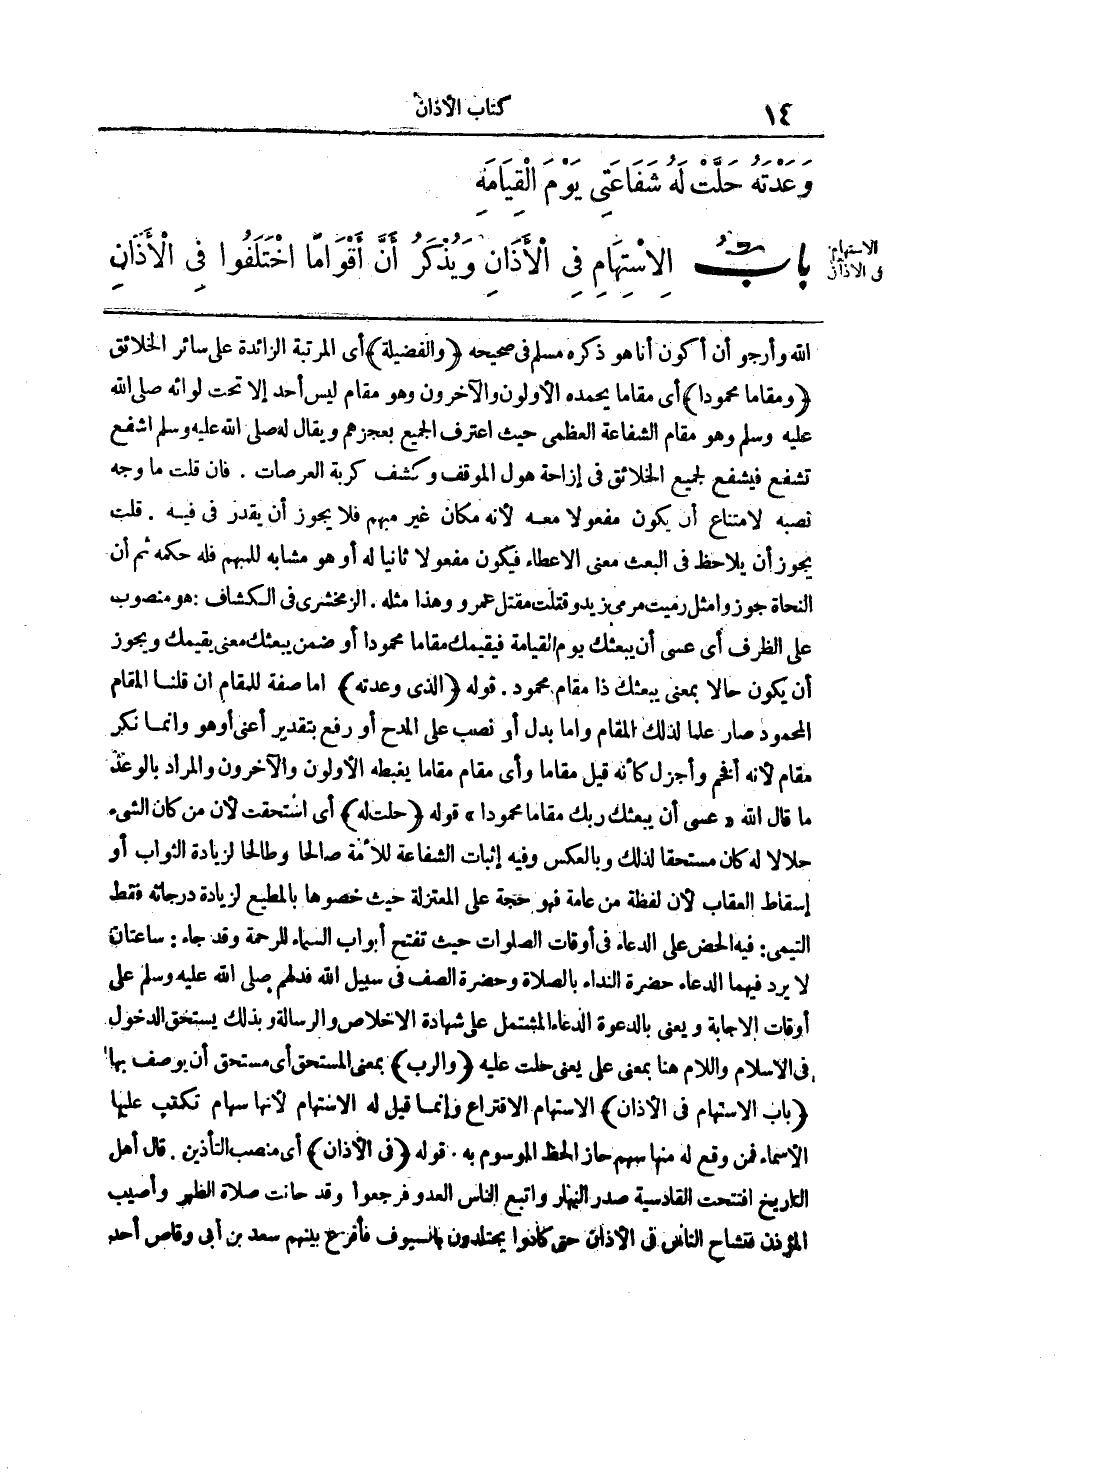 ١٤
كتاب الأذان
وَعَدْتَهُ حَلَّتْ لَهُ شَفَاعَتِى يَوْمَ الْقِيَامَةِ
بابُ الِاسْتِهَامِ فِى الْأَذَانِ وَيُذْكَرُ أَنَّ أَقْوَامًا اخْتَلَفُوا فِى الْأَذَانِ
الاستهام
فى الاذان
الله وأرجو أن أكون أنا هو ذكره مسلم فى صحيحه ﴿والفضيلة﴾ أى المرتبة الزائدة على سائر الخلائق
﴿ومقاما محمودا﴾ أى مقاما يحمده الأولون والآخرون وهو مقام ليس أحد إلا تحت لوائه صلى الله
عليه وسلم وهو مقام الشفاعة العظمى حيث اعترف الجميع بعجزهم ويقال له صلى الله عليه وسلم اشفع
تشفع فيشفع لجميع الخلائق فى إزاحة هول الموقف وكشف كربة العرصات . فان قلت ما وجه
نصبه لامتناع أن يكون مفعولا معه لأنه مكان غير مبهم فلا يجوز أن يقدر فى فيه . قلت
يجوز أن يلاحظ فى البعث معنى الاعطاء فيكون مفعولا ثانيا له أو هو مشابه للمبهم فله حكمه ثم أن
النحاة جوزوا مثل رميت مرمى زيد وقتلت مقتل عمرو وهذا مثله . الزمخشرى فى الكشاف : هو منصوب
على الظرف أى عسى أن يبعثك يوم القيامة فيقيمك مقاما محمودا أو ضمن يبعثك معنى يقيمك ويجوز
أن يكون حالا بمعنى يبعثك ذا مقام محمود . قوله ﴿الذى وعدته﴾ اما صفة للمقام ان قلنا المقام
المحمود صار علما لذلك المقام واما بدل أو نصب على المدح أو رفع بتقدير أعنى أوهو وانما نكر
مقام لأنه أفخم وأجزل كأنه قيل مقاما وأى مقام مقاما يغبطه الأولون والآخرون والمراد بالوعد
ما قال الله « عسى أن يبعثك ربك مقاما محمودا » قوله ﴿حلت له﴾ أى استحقت لأن من كان الشىء
حلالا له كان مستحقا لذلك وبالعكس وفيه إثبات الشفاعة للأمة صالحا وطالحا لزيادة الثواب أو
إسقاط العقاب لأن لفظة من عامة فهو حجة على المعتزلة حيث خصوها بالمطيع لزيادة درجاته فقط
التيمى : فيه الحض على الدعاء فى أوقات الصلوات حيث تفتح أبواب السماء للرحمة وقد جاء : ساعتان
لا يرد فيهما الدعاء حضرة النداء بالصلاة وحضرة الصف فى سبيل الله فدلهم صلى الله عليه وسلم على
أوقات الاجابة ويعنى بالدعوة الدعاء المشتمل على شهادة الاخلاص والرسالة وبذلك يستحق الدخول
فى الاسلام واللام هنا بمعنى على يعنى حلت عليه ﴿والرب﴾ بمعنى المستحق أى مستحق أن يوصف بها
﴿باب الاستهام فى الأذان﴾ الاستهام الاقتراع وإنما قيل له الاستهام لأنها سهام تكتب عليها
الأسماء فمن وقع له منها سهم حاز الحظ الموسوم به . قوله ﴿فى الأذان﴾ أى منصب التأذين . قال أهل
التاريخ افتتحت القادسية صدر النهار واتبع الناس العدو فرجعوا وقد حانت صلاة الظهر وأصيب
المؤذن فتشاح الناس فى الأذان حتى كادوا يجتلدون بالسيوف فأقرع بينهم سعد بن أبى وقاص أحد